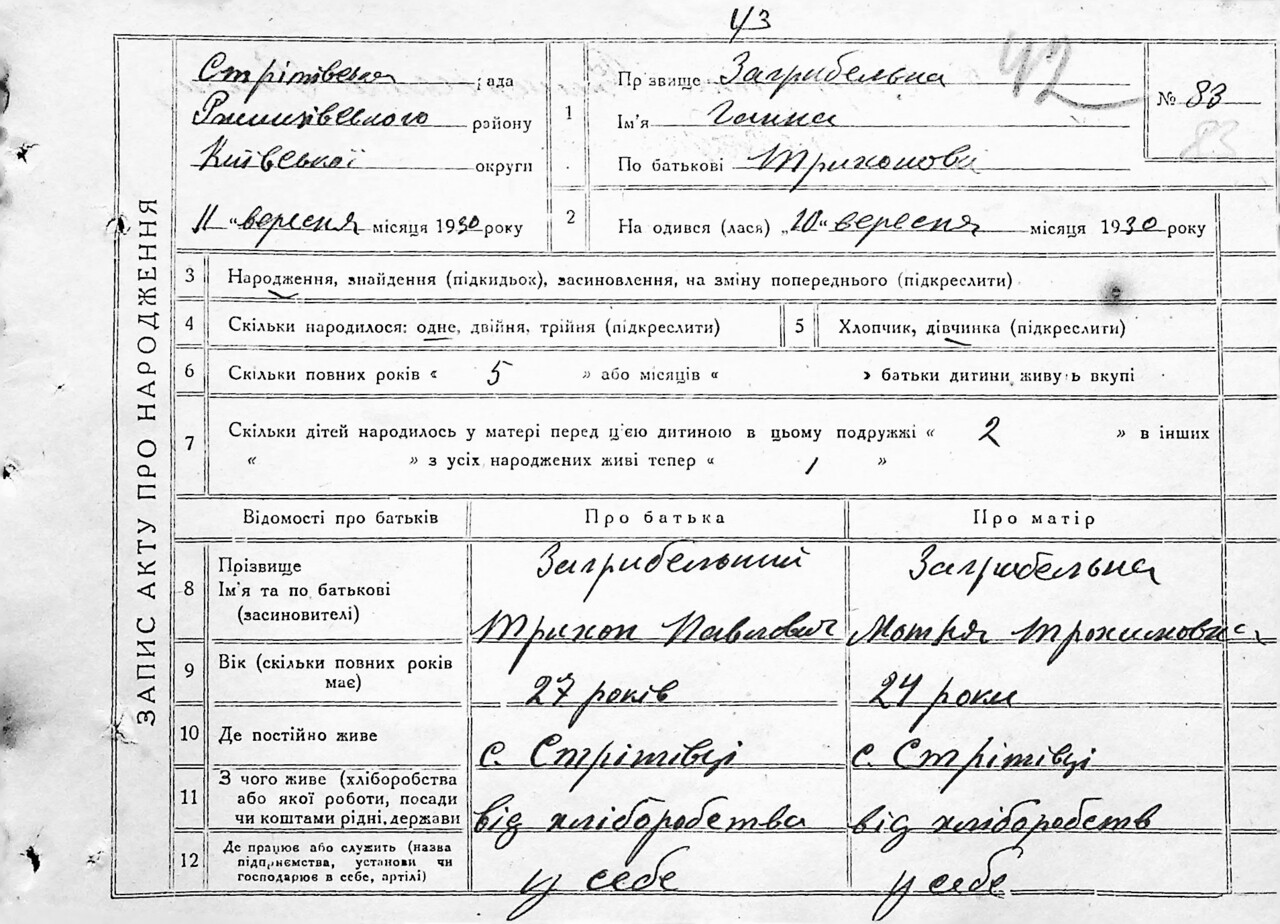 43
42
Стрітівська рада
Ржищівського району
Київської округи
11 " вересня місяця 1930 року
№ 83
83
1 Прізвище Загрибельна
Ім'я Ганна
По батькові Трихонова
2 На одився (лася) „10" вересня місяця 1930 року
ЗАПИС АКТУ ПРО НАРОДЖЕННЯ
3 Народження, знайдення (підкидьок), засиновлення, на зміну попереднього (підкреслити)
4 Скільки народилося: одне, двійня, трійня (підкреслити) 5 Хлопчик, дівчинка (підкреслити)
6 Скільки повних років « 5 » або місяців « » батьки дитини живуть вкупі
7 Скільки дітей народилось у матері перед ц'єю дитиною в цьому подружжі « 2 » в інших
« » з усіх народжених живі тепер « 1 »
Відомості про батьків Про батька Про матір
8 Прізвище Загрибельний Загрибельна
Ім'я та по батькові
(засиновителі) Трихон Павлович Мотря Трохимовна
9 Вік (скільки повних років
має) 27 років 24 роки
10 Де постійно живе с. Стрітівці с. Стрітівці
11 З чого живе (хліборобства
або якої роботи, посади
чи коштами рідні, держави від хліборобства від хліборобств
12 Де працює або служить (назва
підприємства, установи чи
господарює в себе, артілі) у себе у себе